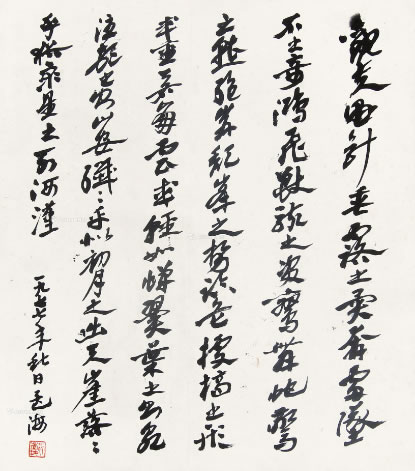 觀夫懸針垂露之異奔雷墜
石之奇鴻飛獸駭之姿鸞舞蛇驚
之態絕岸頹峰之勢臨危據槁之形
或重若崩雲或輕如蟬翼導之則泉
注頓之則山安纖〻乎似初月之出天崖落〻
乎猶眾星之列河漢
一九七七年秋日